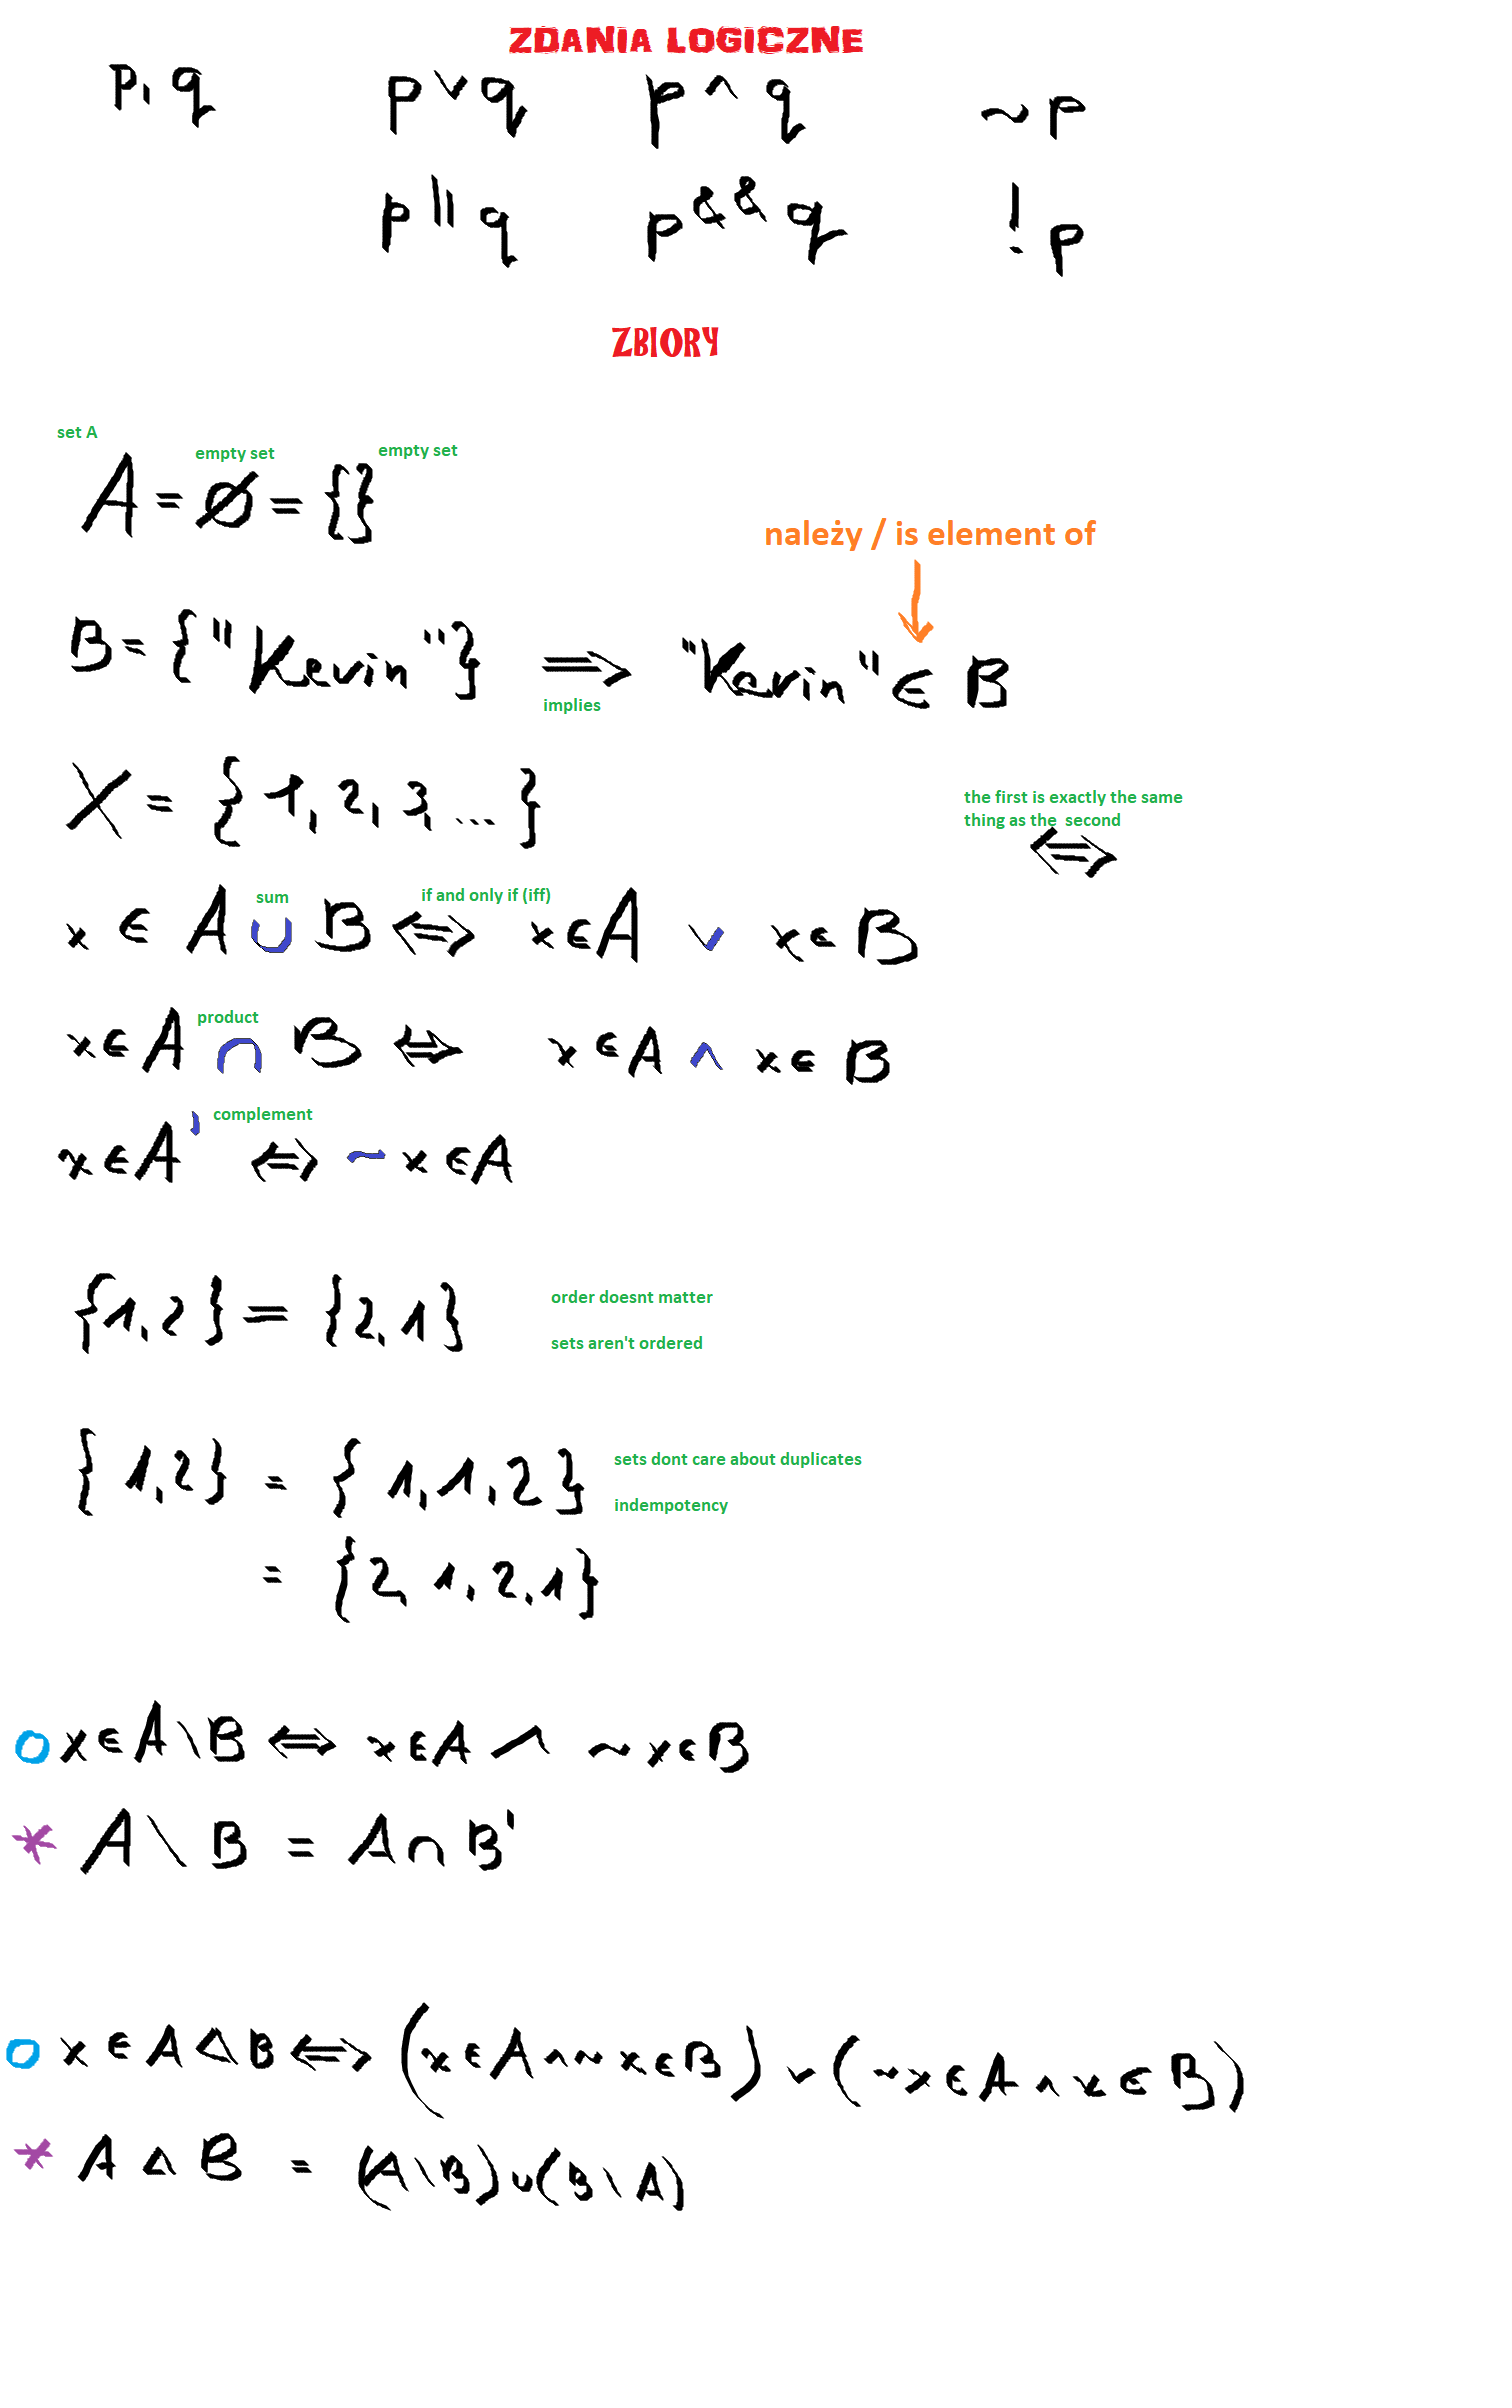 ZDANIA LOGICZNE
p, q p ∨ q p ∧ q ~ p
p || q p && q ! p
ZBIORY
set A empty set empty set
A = ∅ = {}
należy / is element of
B = {"Kevin"} ⟹ "Kevin" ∈ B
implies
X = {1, 2, 3, ...}
the first is exactly the same
thing as the second
⟺
sum if and only if (iff)
x ∈ A ∪ B ⟺ x ∈ A ∨ x ∈ B
product
x ∈ A ∩ B ⟺ x ∈ A ∧ x ∈ B
complement
x ∈ A' ⟺ ~ x ∈ A
{1, 2} = {2, 1} order doesnt matter
sets aren't ordered
{1, 2} = {1, 1, 2} sets dont care about duplicates
indempotency
= {2, 1, 2, 1}
o x ∈ A \ B ⟺ x ∈ A ∧ ~ x ∈ B
* A \ B = A ∩ B'
o x ∈ A △ B ⟺ (x ∈ A ∧ ~ x ∈ B) ∨ (~ x ∈ A ∧ x ∈ B)
* A △ B = (A \ B) ∪ (B \ A)